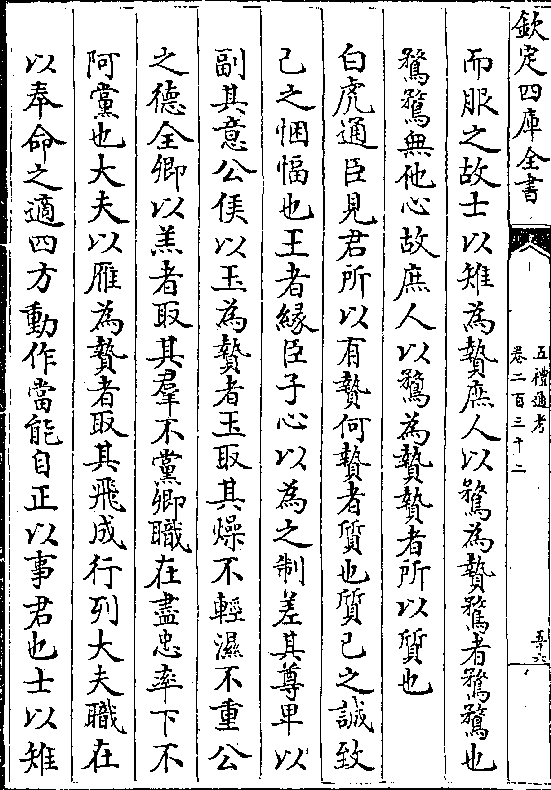 欽定四庫全書
五禮通考
卷二百三十二
而服之故士以雉為贄庶人以鶩為贄鶩者鶩鶩也
鶩鶩無他心故庶人以鶩為贄贄者所以質也
白虎通臣見君所以有贄何贄者質也質己之誠致
己之悃愊也王者緣臣子心以為之制差其尊卑以
副其意公侯以玉為贄者玉取其燥不輕濕不重公
之德全卿以羔者取其羣不黨卿職在盡忠率下不
阿黨也大夫以雁為贄者取其飛成行列大夫職在
以奉命之適四方動作當能自正以事君也士以雉